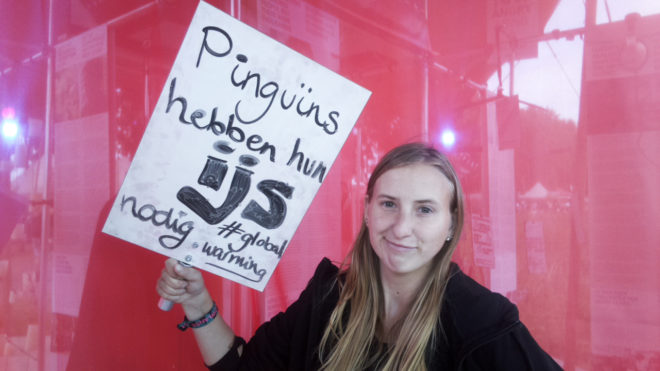 Pinguïns
hebben hun
ijs
nodig.
#global
warming